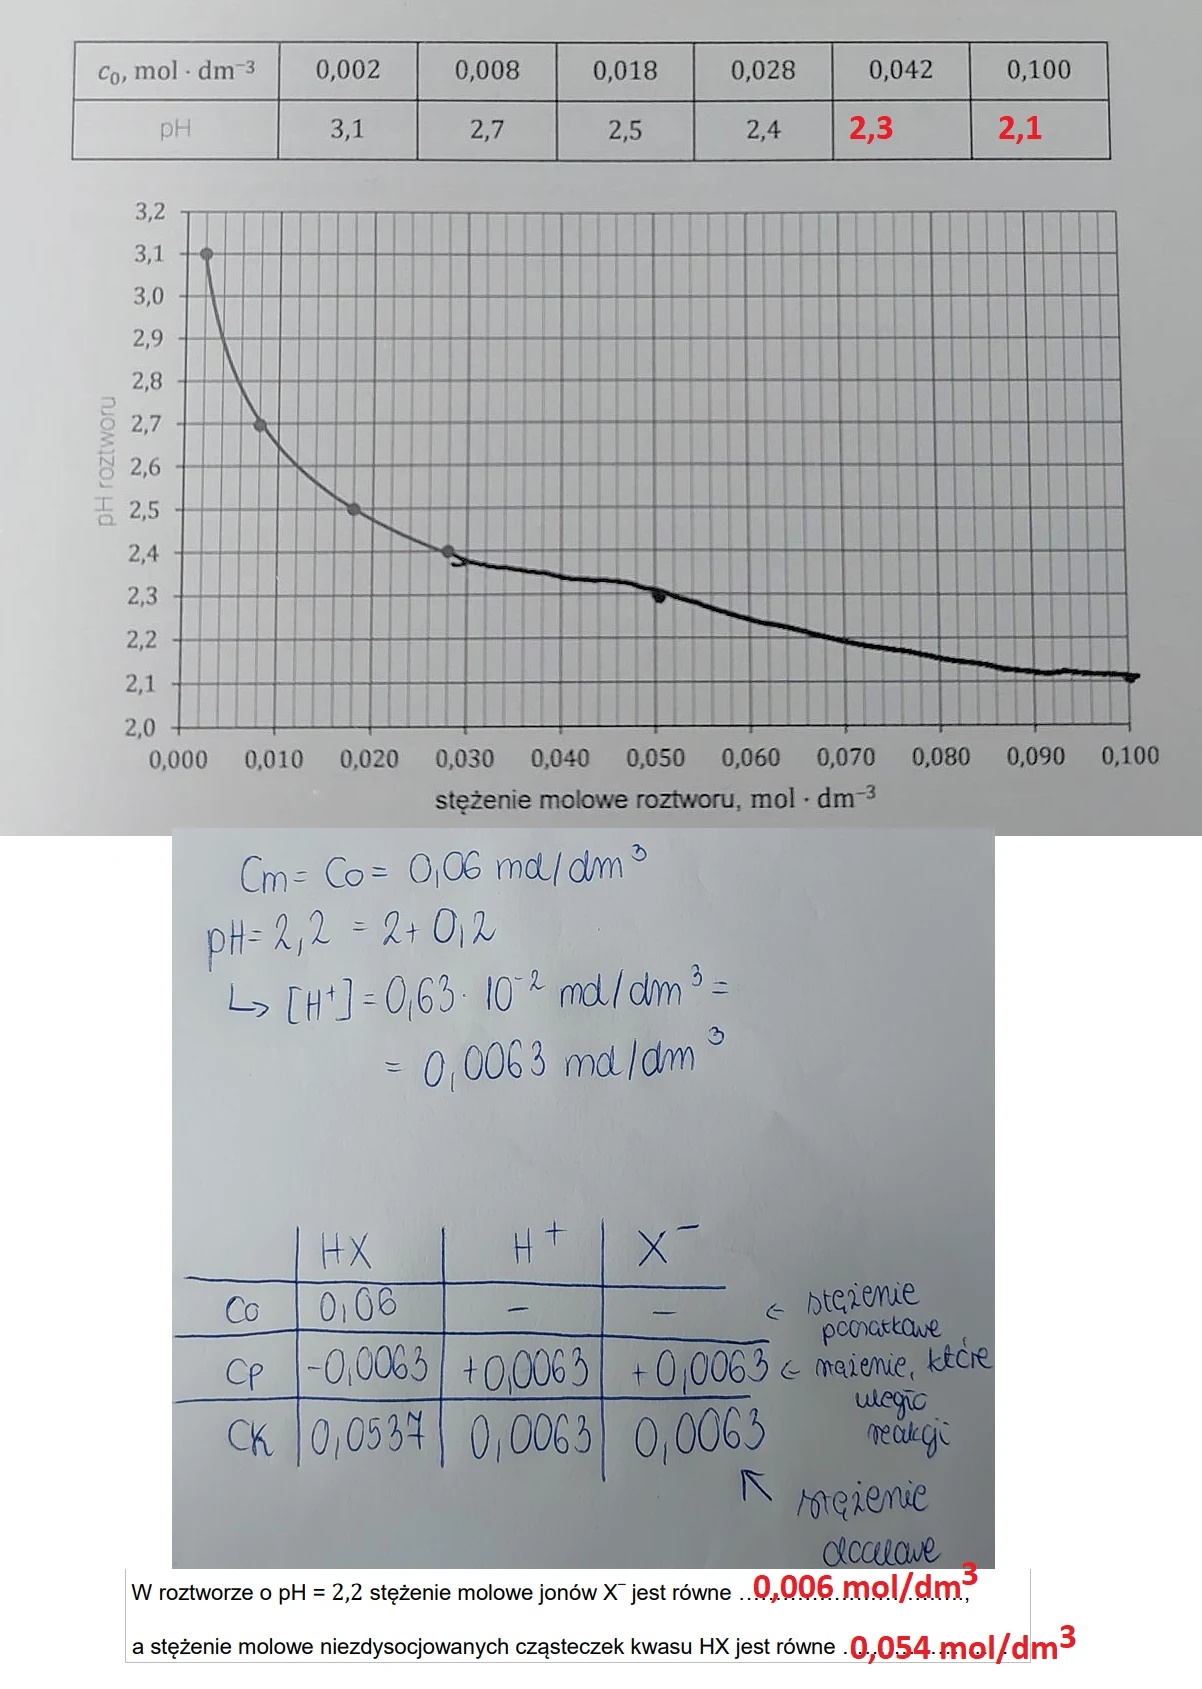 c₀, mol · dm⁻³ 0,002 0,008 0,018 0,028 0,042 0,100
pH 3,1 2,7 2,5 2,4 2,3 2,1
3,2
3,1
3,0
2,9
2,8
2,7
2,6
2,5
2,4
2,3
2,2
2,1
2,0
pH roztworu
0,000 0,010 0,020 0,030 0,040 0,050 0,060 0,070 0,080 0,090 0,100
stężenie molowe roztworu, mol · dm⁻³
Cm = Co = 0,06 mol/dm³
pH = 2,2 = 2 + 0,2
↳ [H⁺] = 0,63 · 10⁻² mol/dm³ =
= 0,0063 mol/dm³
HX H⁺ X⁻
Co 0,06 – – ← stężenie
początkowe
Cp -0,0063 +0,0063 +0,0063 ← stężenie, które
uległo
reakcji
CK 0,0537 0,0063 0,0063
↖ stężenie
docelowe
W roztworze o pH = 2,2 stężenie molowe jonów X⁻ jest równe 0,006 mol/dm³,
a stężenie molowe niezdysocjowanych cząsteczek kwasu HX jest równe 0,054 mol/dm³